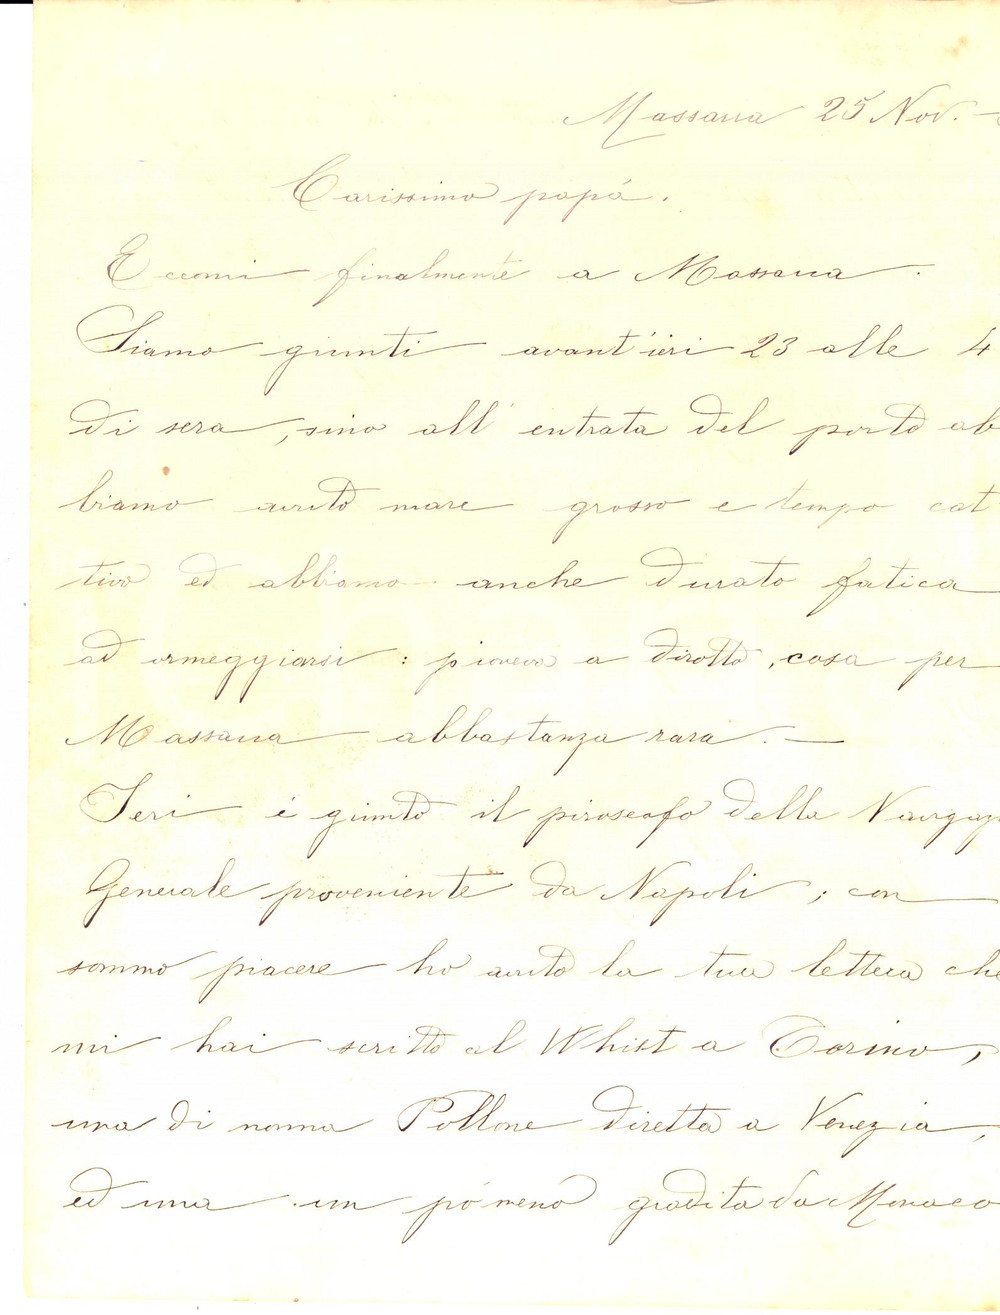 Massaua 25 Nov.
Carissimo papá.
Eccomi finalmente a Massaua.
Siamo giunti avant'ieri 23 alle 4
di sera, sino all' entrata del porto ab
biamo avuto mare grosso e tempo cat
tivo ed abbiamo anche durato fatica
ad ormeggiarsi: pioveva a dirotto, cosa per
Massaua abbastanza rara. —
Ieri é giunto il piroscafo della Navigaz
Generale proveniente da Napoli; con
sommo piacere ho avuto la tua lettera che
mi hai scritto al Whist a Torino,
una di nonna Pollone diretta a Venezia,
ed una un pó meno gradita da Monaco